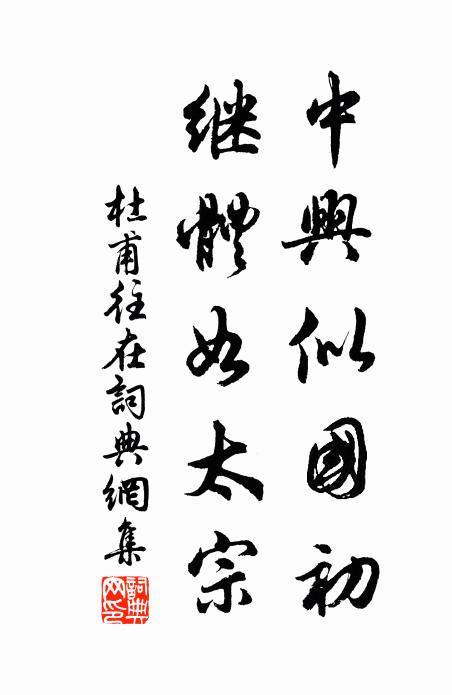 中興似國初
継體如太宗
杜甫往在詞典網集
詞典網印